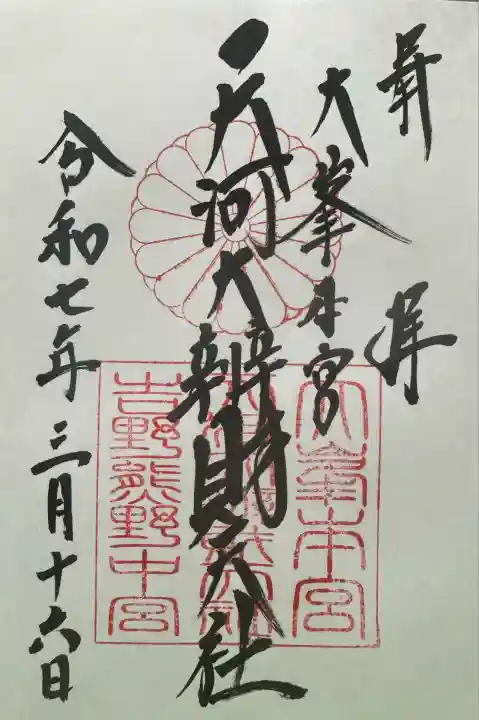 奉拝
大峯本宮
天河大辨財天社
令和七年三月十六日
大峯本宮
吉野熊野中宮